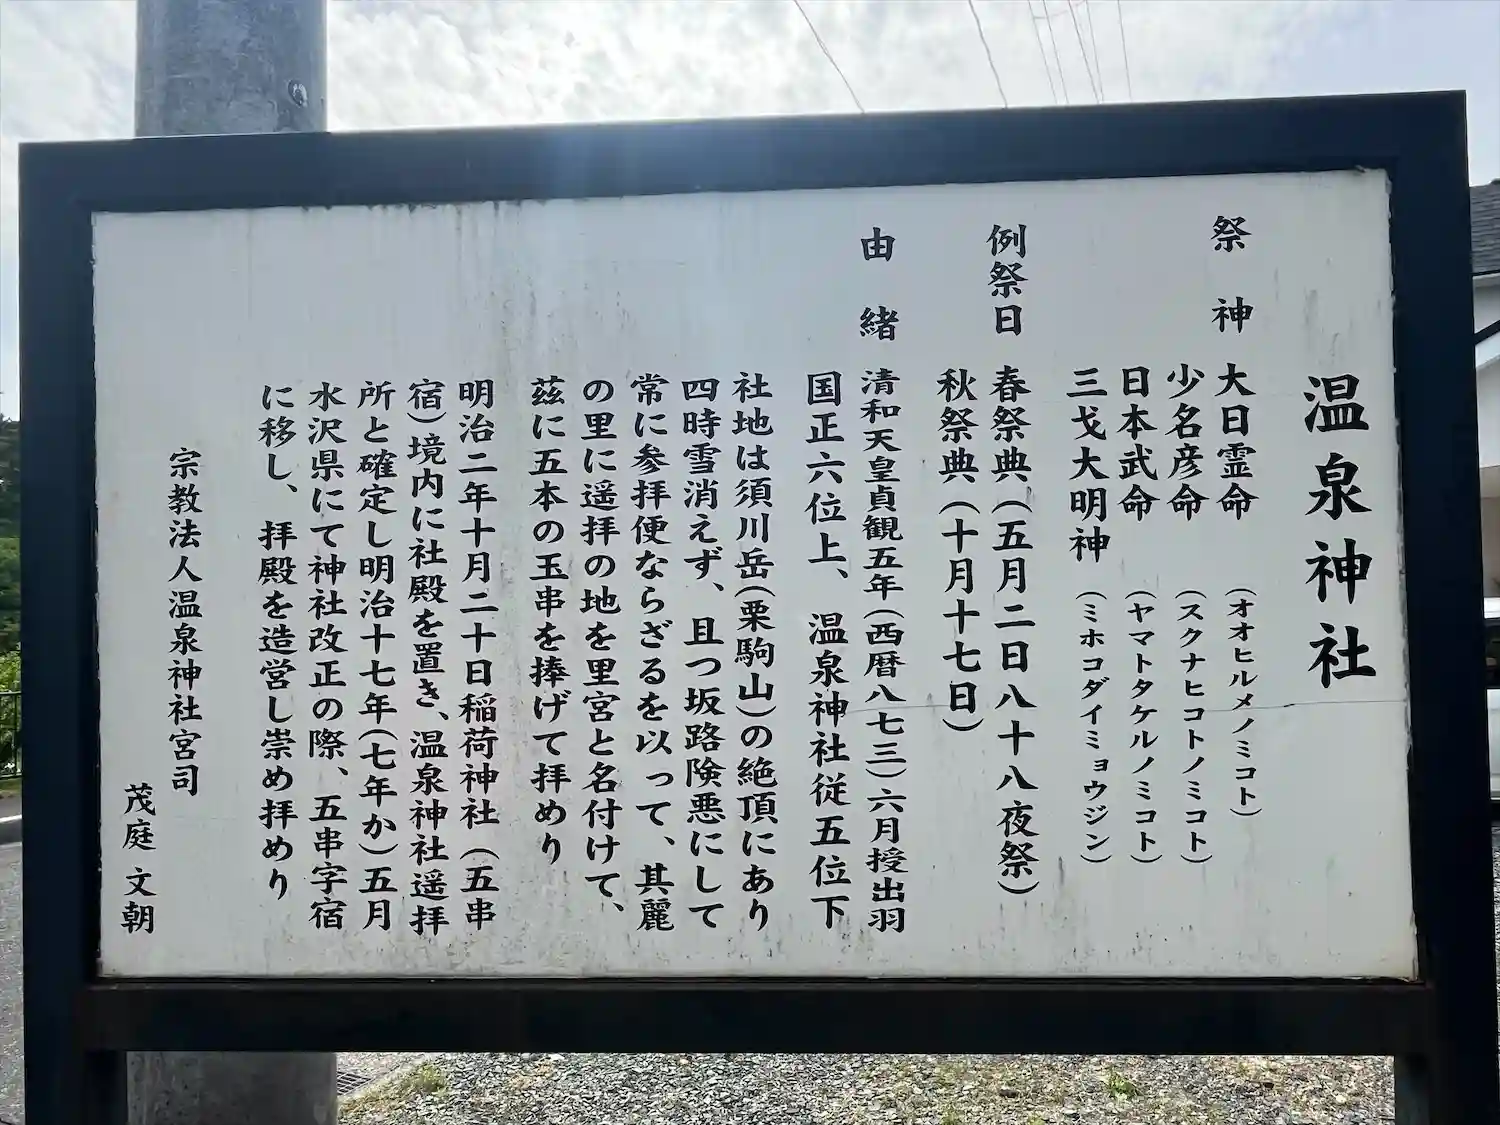 温泉神社
祭　神　大日霊命　（オオヒルメノミコト）
少名彦命　（スクナヒコトノミコト）
日本武命　（ヤマトタケルノミコト）
三戈大明神　（ミホコダイミョウジン）
例祭日　春祭典（五月二日八十八夜祭）
秋祭典（十月十七日）
由　緒　清和天皇貞観五年（西暦八七三）六月授出羽
国正六位上、温泉神社従五位下
社地は須川岳（栗駒山）の絶頂にあり
四時雪消えず、且つ坂路険悪にして
常に参拝便ならざるを以って、其麗
の里に遥拝の地を里宮と名付けて、
茲に五本の玉串を捧げて拝めり
明治二年十月二十日稲荷神社（五串
宿）境内に社殿を置き、温泉神社遥拝
所と確定し明治十七年（七年か）五月
水沢県にて神社改正の際、五串字宿
に移し、拝殿を造営し崇め拝めり
宗教法人温泉神社宮司
茂庭　文朝